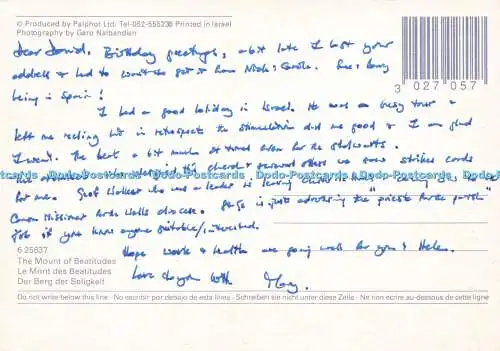 © Produced by Palphot Ltd. Tel-052-555238 Printed in Israel
Photography by Garo Nalbandian
Dear David, Birthday greetings, a bit late I lost your
address & had to wait to get it from Nick & Carole. See & Gerry
being in Spain!
3 027057
I had a good holiday in Israel. It was a busy tour &
left me reeling but in retrospect the stimulation did me good & I am glad
I went. The heat a bit much at times even for the stalwarts.
Postcards Dodo-Postcards Dodo-Postcards Dodo-Postcards Dodo-Postcards Dodo-Postcards
church & several others we saw strikes cords
for me. Geoff Walker who was a leader is leaving
Canon Missioner Bath & Wells diocese. is just advertising the "priest for the parish"
job if you know anyone suitable/interested.
6 25637
Hope work & health are going well for you & Helen.
The Mount of Beatitudes
Le Mont des Béatitudes
Love to you both Mary.
Der Berg der Seligkeit
Do not write below this line · No escribir por debajo de esta linea · Schreiben sie nicht unter diese Zeile · Ne rien ecrire au-dessous de cette ligne